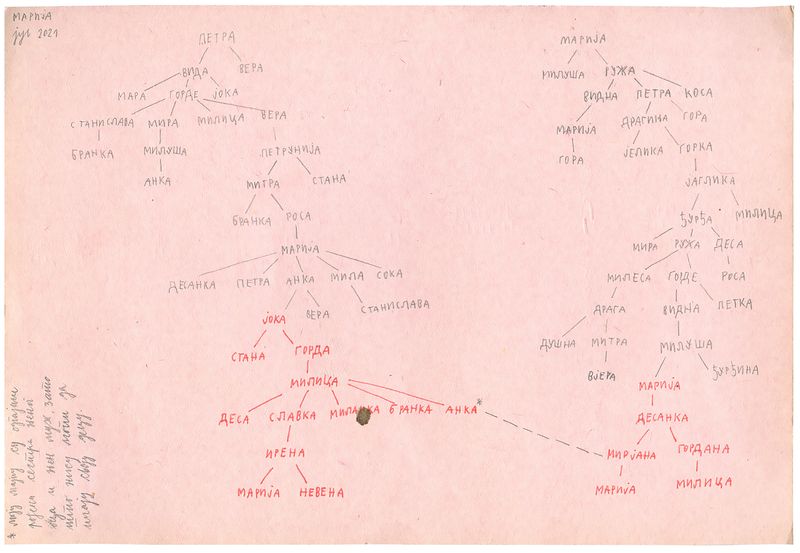 МАРИЈА
јул 2021
ПЕТРА
ВИДА
ВЕРА
МАРА
ГОРДЕ
ЈОКА
СТАНИСЛАВА
МИРА
МИЛИЦА
ВЕРА
БРАНКА
МИЛУША
ПЕТРУНИЈА
АНКА
МИТРА
СТАНА
БРАНКА
РОСА
МАРИЈА
ДЕСАНКА
ПЕТРА
АНКА
МИЛА
СОКА
ВЕРА
СТАНИСЛАВА
ЈОКА
СТАНА
ГОРДА
МИЛИЦА
ДЕСА
СЛАВКА
МИЛАНКА
БРАНКА
АНКА*
ИРЕНА
МАРИЈА
НЕВЕНА
МАРИЈА
МИЛУША
РУЖА
ВИДНА
ПЕТРА
КОСА
МАРИЈА
ДРАГИЊА
ГОРА
ГОРА
ЈЕЛИКА
ГОРКА
ЈАГЛИКА
ЂУРЂА
МИЛИЦА
МИРА
РУЖА
ДЕСА
МИЛЕСА
ГОРДЕ
РОСА
ДРАГА
ВИДЊА
ЛЕТКА
ДУШНА
МИТРА
МИЛУША
ВЈЕРА
ЂУРЂИНА
МАРИЈА
ДЕСАНКА
МИРЈАНА
ГОРДАНА
МАРИЈА
МИЛИЦА
* моју мајку су
рођена сестра
и њен муж, зато
што нису могли да
имају своју децу.